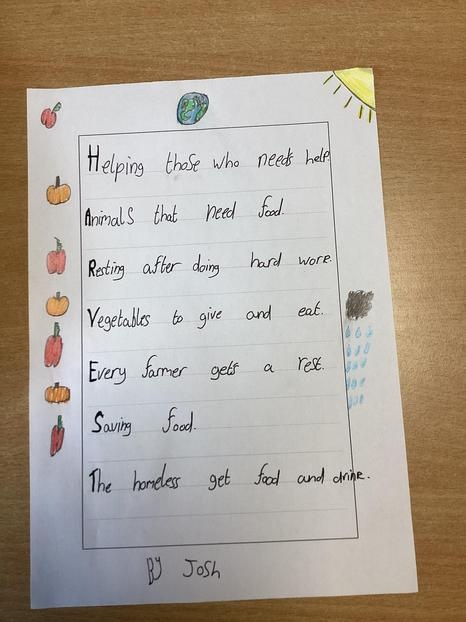 Helping those who needs help.
Animals that need food.
Resting after doing hard wore.
Vegetables to give and eat.
Every farmer gets a rest.
Saving food.
The homeless get food and drink.
By Josh